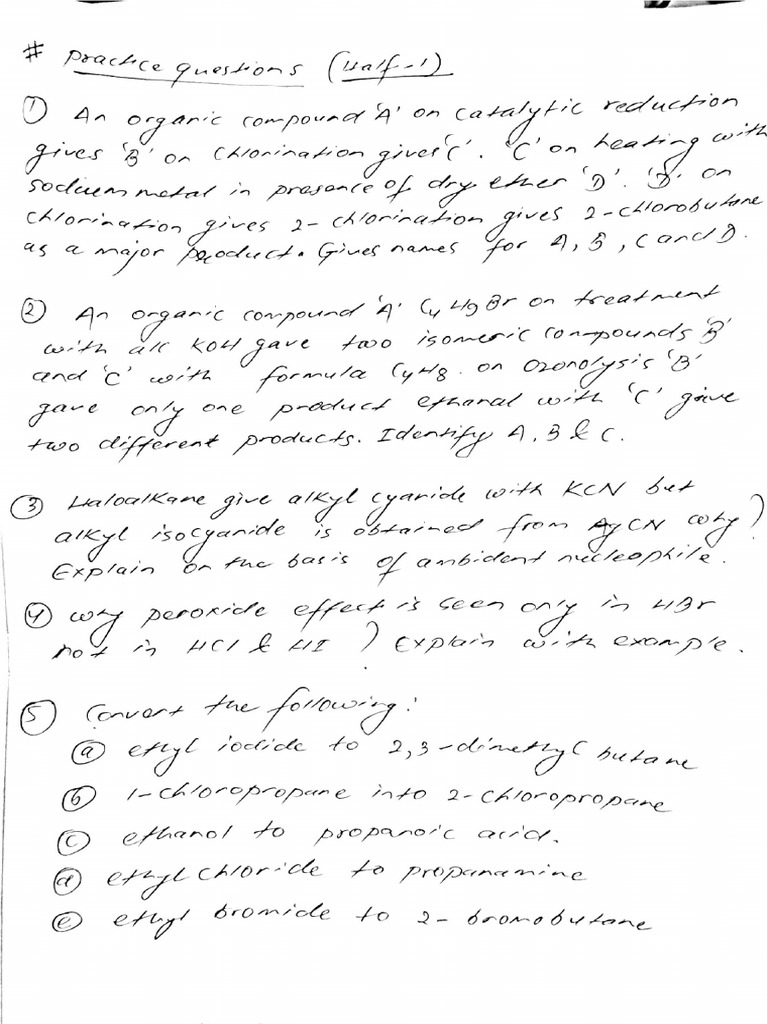 # Practice questions (Half-1)
① An organic compound 'A' on catalytic reduction
gives 'B' on chlorination gives 'C'. 'C' on heating with
sodium metal in presence of dry ether 'D'. 'D' on
chlorination gives 2-chlorination gives 2-chlorobutane
as a major product. Gives names for A, B, C and D.
② An organic compound 'A' C4H9Br on treatment
with alc KOH gave two isomeric compounds 'B'
and 'C' with formula C4H8. on Ozonolysis 'B'
gave only one product ethanal with 'C' give
two different products. Identify A, B & C.
③ Haloalkane give alkyl cyanide with KCN but
alkyl isocyanide is obtained from AgCN why?
Explain on the basis of ambident nucleophile.
④ why peroxide effect is seen only in HBr
not in HCl & HI ? Explain with example.
⑤ Convert the following:
ⓐ ethyl iodide to 2,3-dimethyl butane
ⓑ 1-chloropropane into 2-chloropropane
ⓒ ethanol to propanoic acid.
ⓓ ethyl chloride to propanamine
ⓔ ethyl bromide to 2-bromobutane